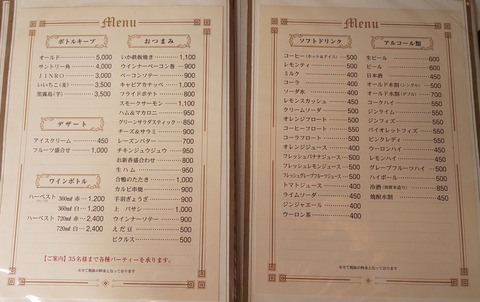 Menu
ボトルキープ
オールド 5,000
サントリー角 4,000
JINRO 3,000
いいちこ(麦) 3,500
黒霧島(芋) 3,500
デザート
アイスクリーム 450
フルーツ盛合せ 1,000
ワインボトル
ハーベスト 360ml 赤 1,200
360ml 白 1,200
ハーベスト 720ml 赤 2,400
720ml 白 2,400
おつまみ
いか鉄板焼き 1,100
ウインナーベーコン巻 900
ベーコンソテー 900
キャビアカナッペ 1,000
フライドポテト 800
スモークサーモン 1,100
ハム＆マカロニ 950
グリーンサラダスティック 850
チーズ＆サラミ 900
レーズンバター 700
チキンジュウジュウ 950
お新香盛合わせ 800
生ハム 950
合鴨のたたき 1,000
カルビ串焼 900
手羽ぎょうざ 900
上バサシ 1,000
ウインナーソテー 900
えだ豆 500
ピクルス 500
【ご案内】35名様まで各種パーティーを承ります。
Menu
ソフトドリンク
コーヒー(ホット&アイス) 500
レモンティ 500
ミルク 400
コーラ 400
ソーダ水 400
レモンスカッシュ 450
クリームソーダ 500
オレンジフロート 500
コーヒーフロート 550
コーラフロート 500
オレンジジュース 400
フレッシュバナナジュース 500
フレッシュレモンジュース 500
フレッシュグレープフルーツジュース 500
トマトジュース 400
ライムソーダ 450
ジンジャエール 400
ウーロン茶 400
アルコール類
生ビール 600
ビール 600
日本酒 450
オールド水割(シングル) 500
オールド水割(ダブル) 700
コークハイ 500
ジンライム 500
ジンフィズ 550
バイオレットフィズ 550
ピンクレディ 550
ウーロンハイ 450
レモンハイ 450
グレープフルーツハイ 500
ハイボール 500
焼酎水割 450